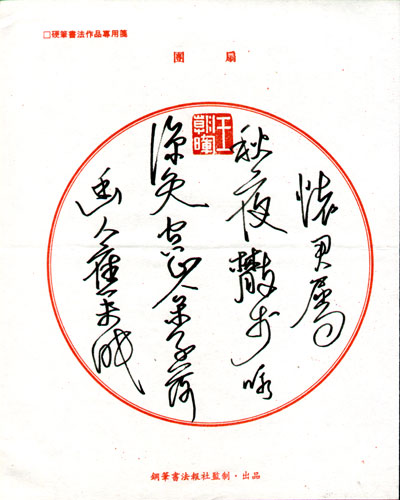 □硬筆書法作品專用箋
團 扇
懷君屬
秋夜散步咏
涼天空山松子落
幽人應未眠
鋼筆書法報社監制·出品